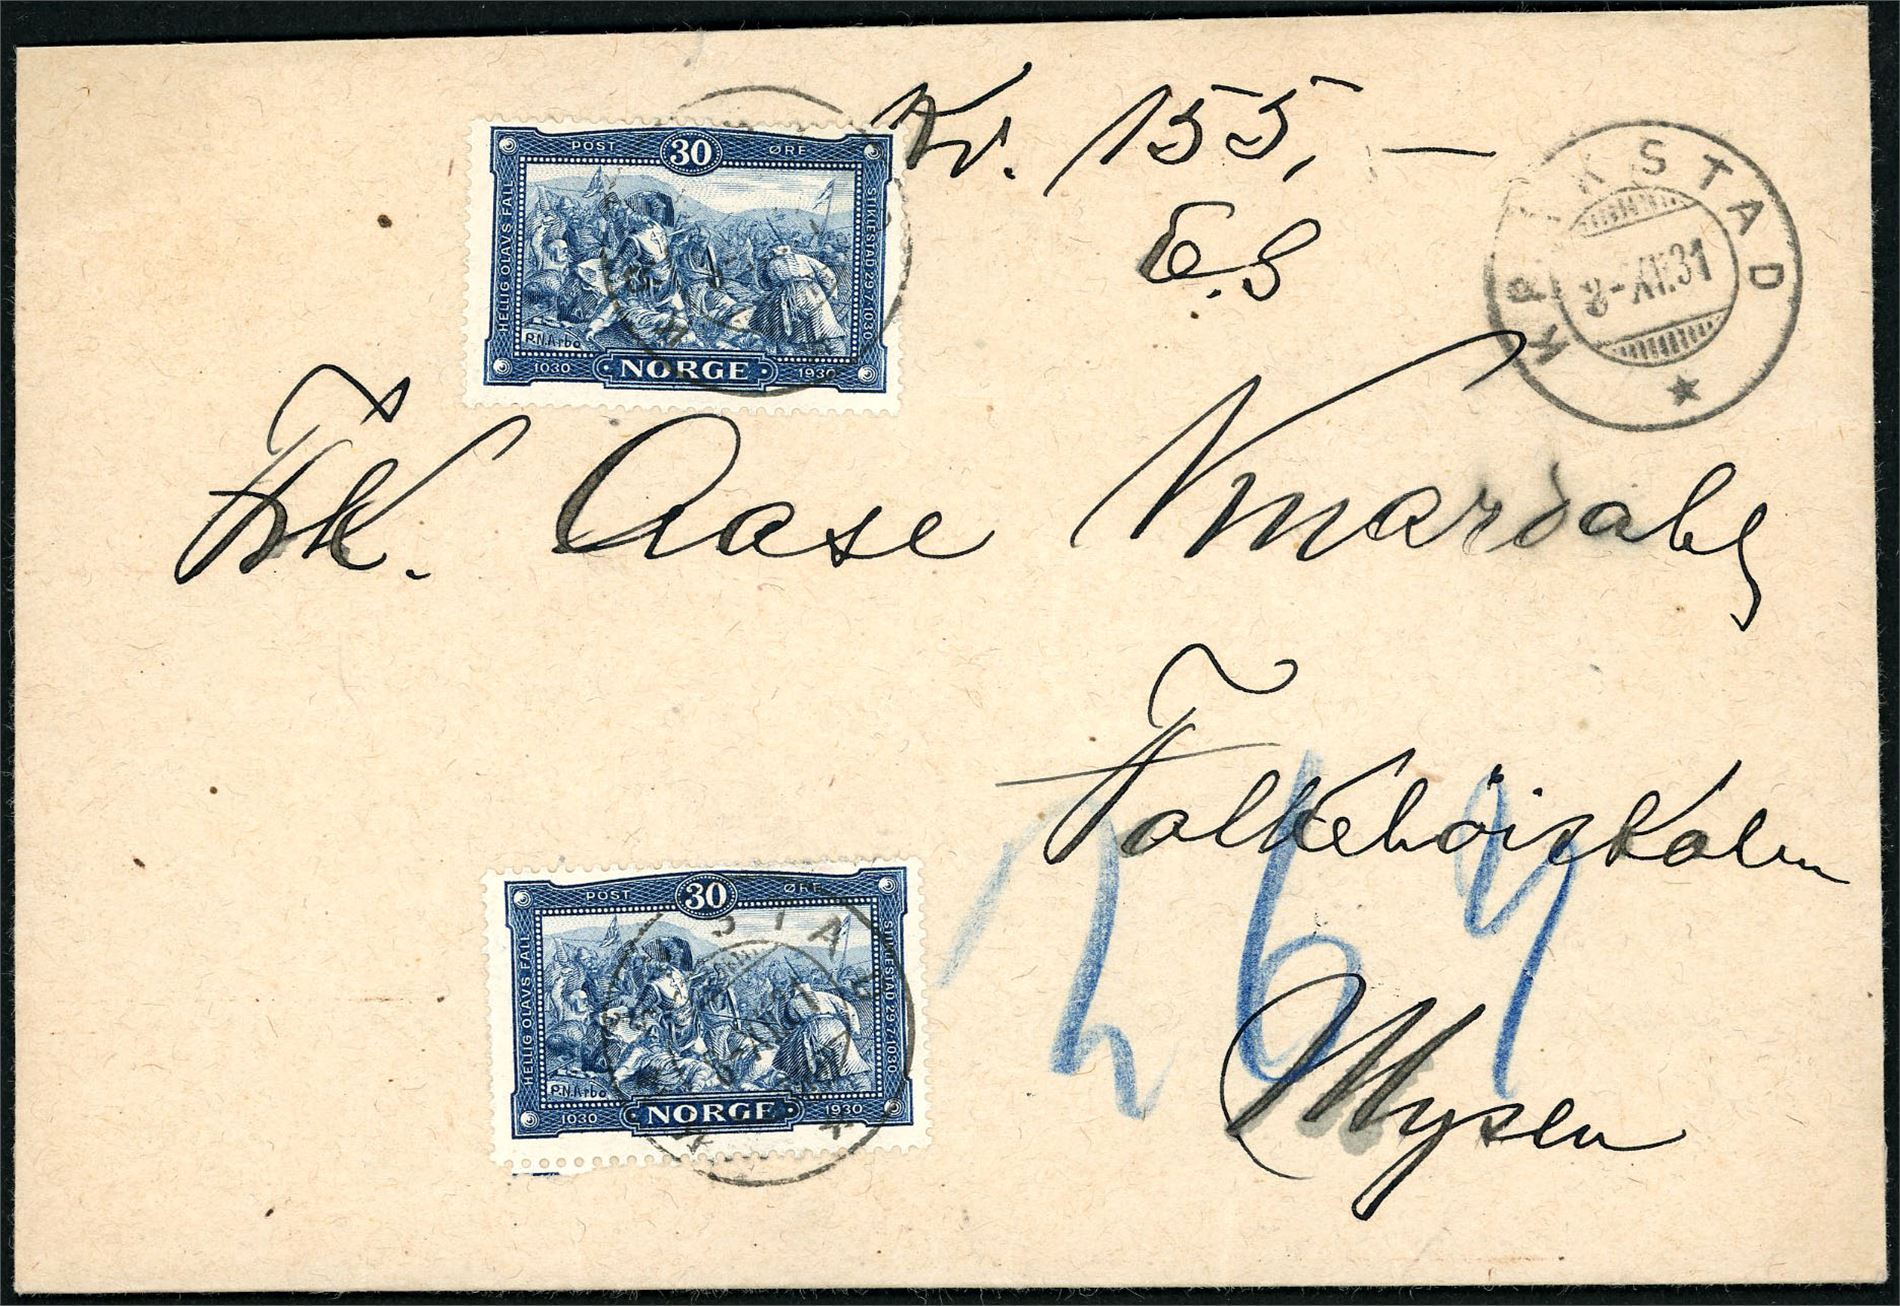 Kr. 155,—
E.S
KRÅKSTAD
8-XI.31
POST 30 ØRE
HELLIG OLAVS FALL
STIKLESTAD 29-7-1030
P.N.Arbo
1030 NORGE 1930
Frk. Aase
Folkehöiskolen
269
Mysen
POST 30 ØRE
HELLIG OLAVS FALL
STIKLESTAD 29-7-1030
P.N.Arbo
1030 NORGE 1930